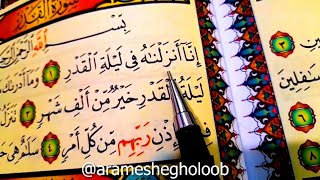 سُورَةُ الْقَدْرِ
بِسْمِ اللَّهِ الرَّحْمَٰنِ
إِنَّا أَنزَلْنَٰهُ فِي لَيْلَةِ الْقَدْرِ ١ وَمَا أَدْرَ
لَيْلَةُ الْقَدْرِ خَيْرٌ مِّنْ أَلْفِ شَهْرٍ ٣ تَنَزَّلُ
ذْنِ رَبِّهِم مِّن كُلِّ أَمْرٍ ٤ سَلَٰمٌ هِيَ
٣
سَٰفِلِينَ
٦
٨
@arameshegholoob